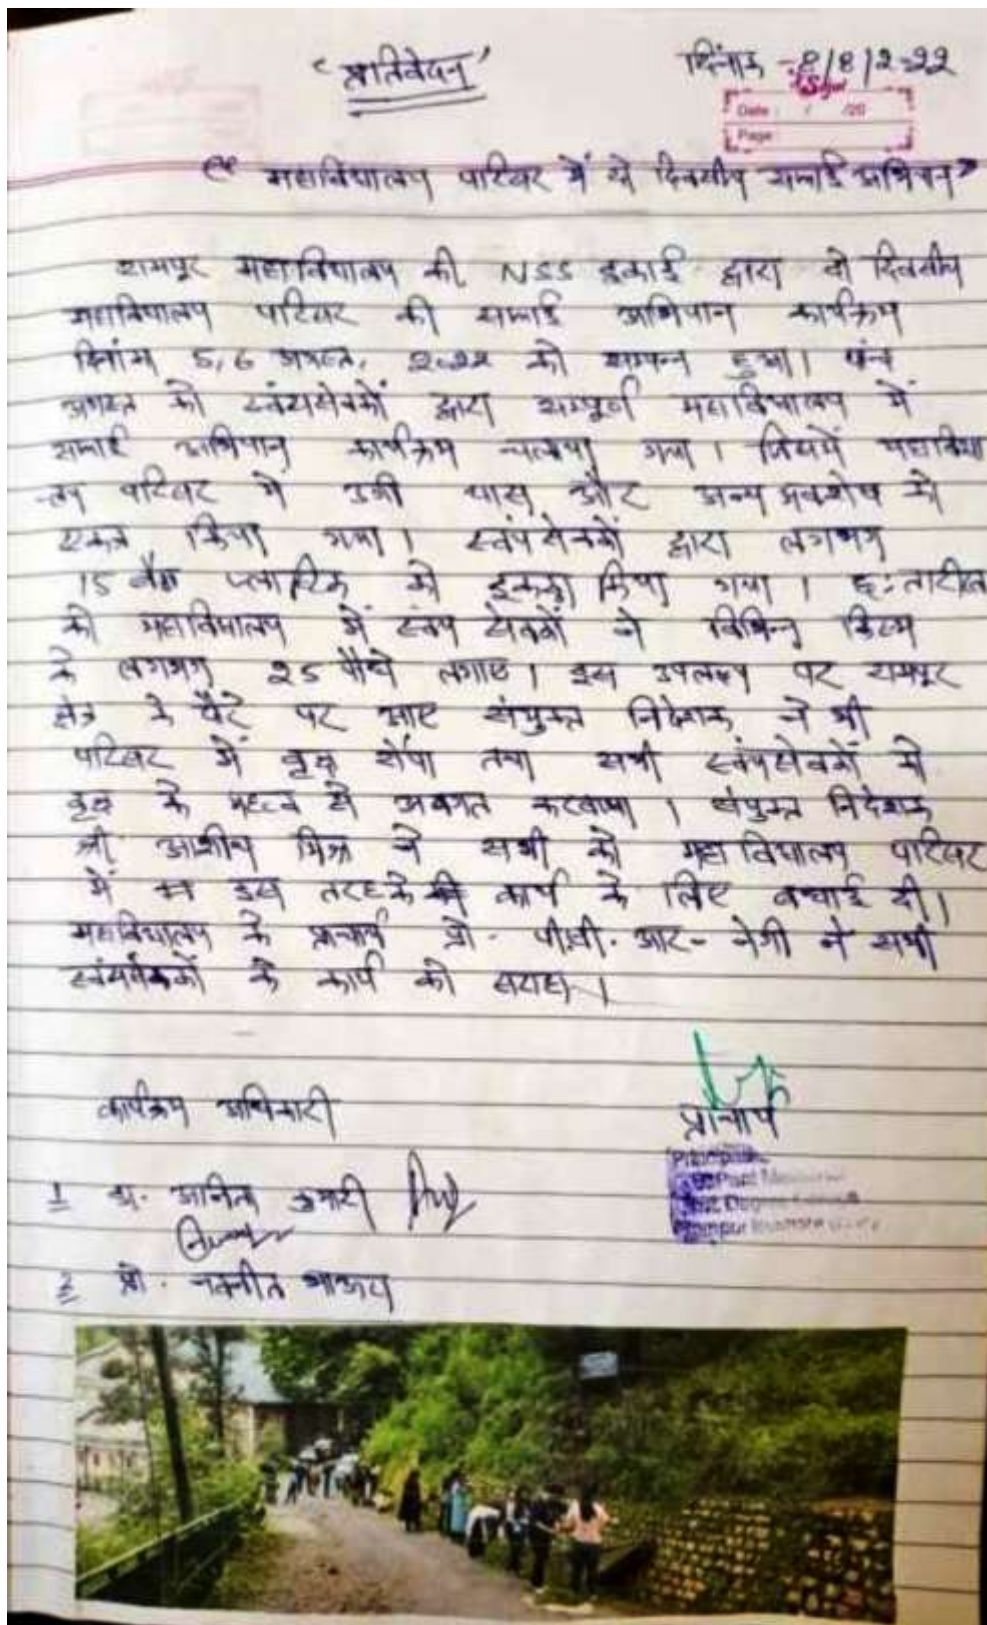 ‘प्रतिवेदन’
दिनांक - 8/8/2022
Date : / /20
Page
“ महाविद्यालय परिसर में दो दिवसीय सफाई अभियान ”
रामपुर महाविद्यालय की NSS इकाई द्वारा दो दिवसीय
महाविद्यालय परिसर की सफाई अभियान कार्यक्रम
दिनांक 5,6 अगस्त, 2022 को सम्पन्न हुआ। पांच
अगस्त को स्वंयसेवकों द्वारा सम्पूर्ण महाविद्यालय में
सफाई अभियान कार्यक्रम चलाया गया । जिसमें महाविद्या
लय परिसर में उगी घास और अन्य अवशेष को
एकत्र किया गया। स्वंयसेवकों द्वारा लगभग
15 बैग प्लास्टिक को इकठ्ठा किया गया । छ: तारीख
को महाविद्यालय में स्वंय सेवकों ने विभिन्न किस्म
के लगभग 25 पौधे लगाए। इस उपलक्ष्य पर रामपुर
क्षेत्र के दौरे पर आए संयुक्त निदेशक ने भी
परिसर में वृक्ष रोपा तथा सभी स्वंयसेवकों को
वृक्ष के महत्व से अवगत करवाया । संयुक्त निदेशक
श्री आशीष मित्र ने सभी को महाविद्यालय परिसर
में इस तरह के कार्य के लिए बधाई दी।
महाविद्यालय के प्राचार्य प्रो. पी.वी. आर- नेगी ने सभी
स्वंयसेवकों के कार्य को सराहा।
कार्यक्रम अधिकारी
प्राचार्य
1 प्रो. अनिता कुमारी
2 प्रो. नवनीत